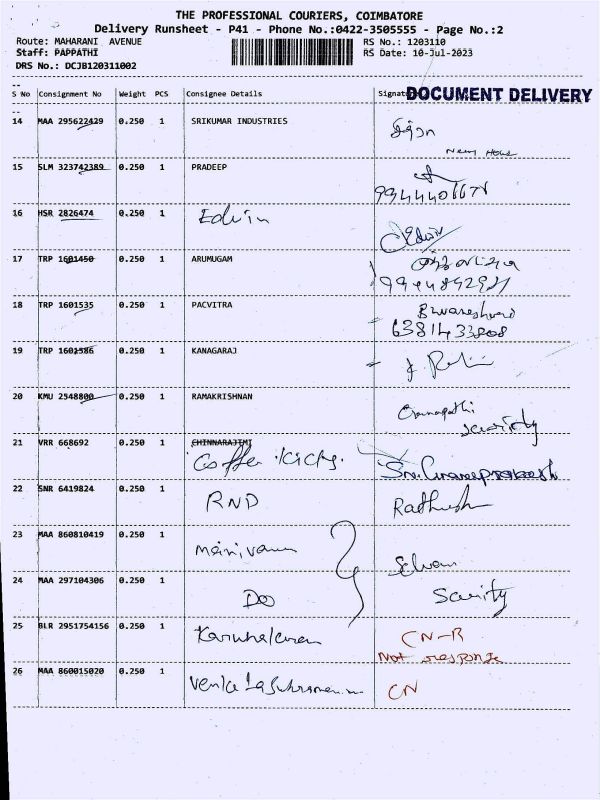 THE PROFESSIONAL COURIERS, COIMBATORE
Delivery Runsheet - P41 - Phone No.:0422-3505555 - Page No.:2
Route: MAHARANI AVENUE RS No.: 1203110
Staff: PAPPATHI RS Date: 10-Jul-2023
DRS No.: DCJB120311002
DOCUMENT DELIVERY
S No Consignment No Weight PCS Consignee Details
14 MAA 295622429 0.250 1 SRIKUMAR INDUSTRIES
15 SLM 323742389 0.250 1 PRADEEP
16 HSR 2826474 0.250 1 Edwin Edwin
17 TRP 1601450 0.250 1 ARUMUGAM
18 TRP 1601535 0.250 1 PACVITRA
6381433808
19 TRP 1601586 0.250 1 KANAGARAJ
20 KMU 2548800 0.250 1 RAMAKRISHNAN
21 VRR 668692 0.250 1 CHINNARAJIMI
Coffee Kicks.
22 SNR 6419824 0.250 1 RND
23 MAA 860810419 0.250 1 Selvam
24 MAA 297104306 0.250 1 Do
25 BLR 2951754156 0.250 1 Karunakaran CN-R
Not response
26 MAA 860015020 0.250 1 CN